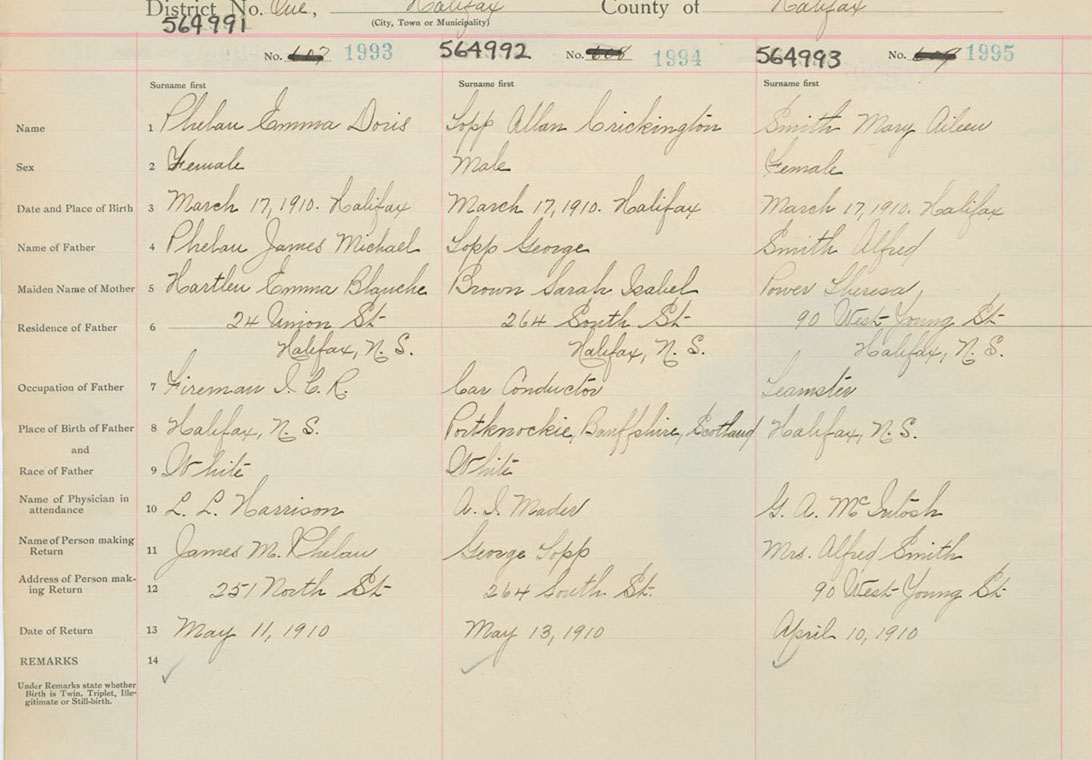 District No. One, Halifax County of Halifax
(City, Town or Municipality)
564991 564992 564993
No. 607 1993 No. 608 1994 No. 609 1995
Surname first Surname first Surname first
Name 1 Phelan Emma Doris Topp Allan Crickington Smith Mary Aileen
Sex 2 Female Male Female
Date and Place of Birth 3 March 17, 1910. Halifax March 17, 1910. Halifax March 17, 1910. Halifax
Name of Father 4 Phelan James Michael Topp George Smith Alfred
Maiden Name of Mother 5 Hartlen Emma Blanche Brown Sarah Isabel Power Theresa,
Residence of Father 6 24 Union St 264 South St 90 West Young St
Halifax, N. S. Halifax, N. S. Halifax, N. S.
Occupation of Father 7 Fireman I. C. R. Car Conductor Teamster
Place of Birth of Father 8 Halifax, N. S. Portknockie, Banffshire, Scotland Halifax, N. S.
and
Race of Father 9 White White
Name of Physician in
attendance 10 L. L. Harrison A. I. Mader G. A. McIntosh
Name of Person making
Return 11 James M. Phelan George Topp Mrs. Alfred Smith
Address of Person mak-
ing Return 12 251 North St 264 South St. 90 West Young St
Date of Return 13 May 11, 1910 May 13, 1910 April 10, 1910
REMARKS 14
Under Remarks state whether
Birth is Twin, Triplet, Ille-
gitimate or Still-birth.